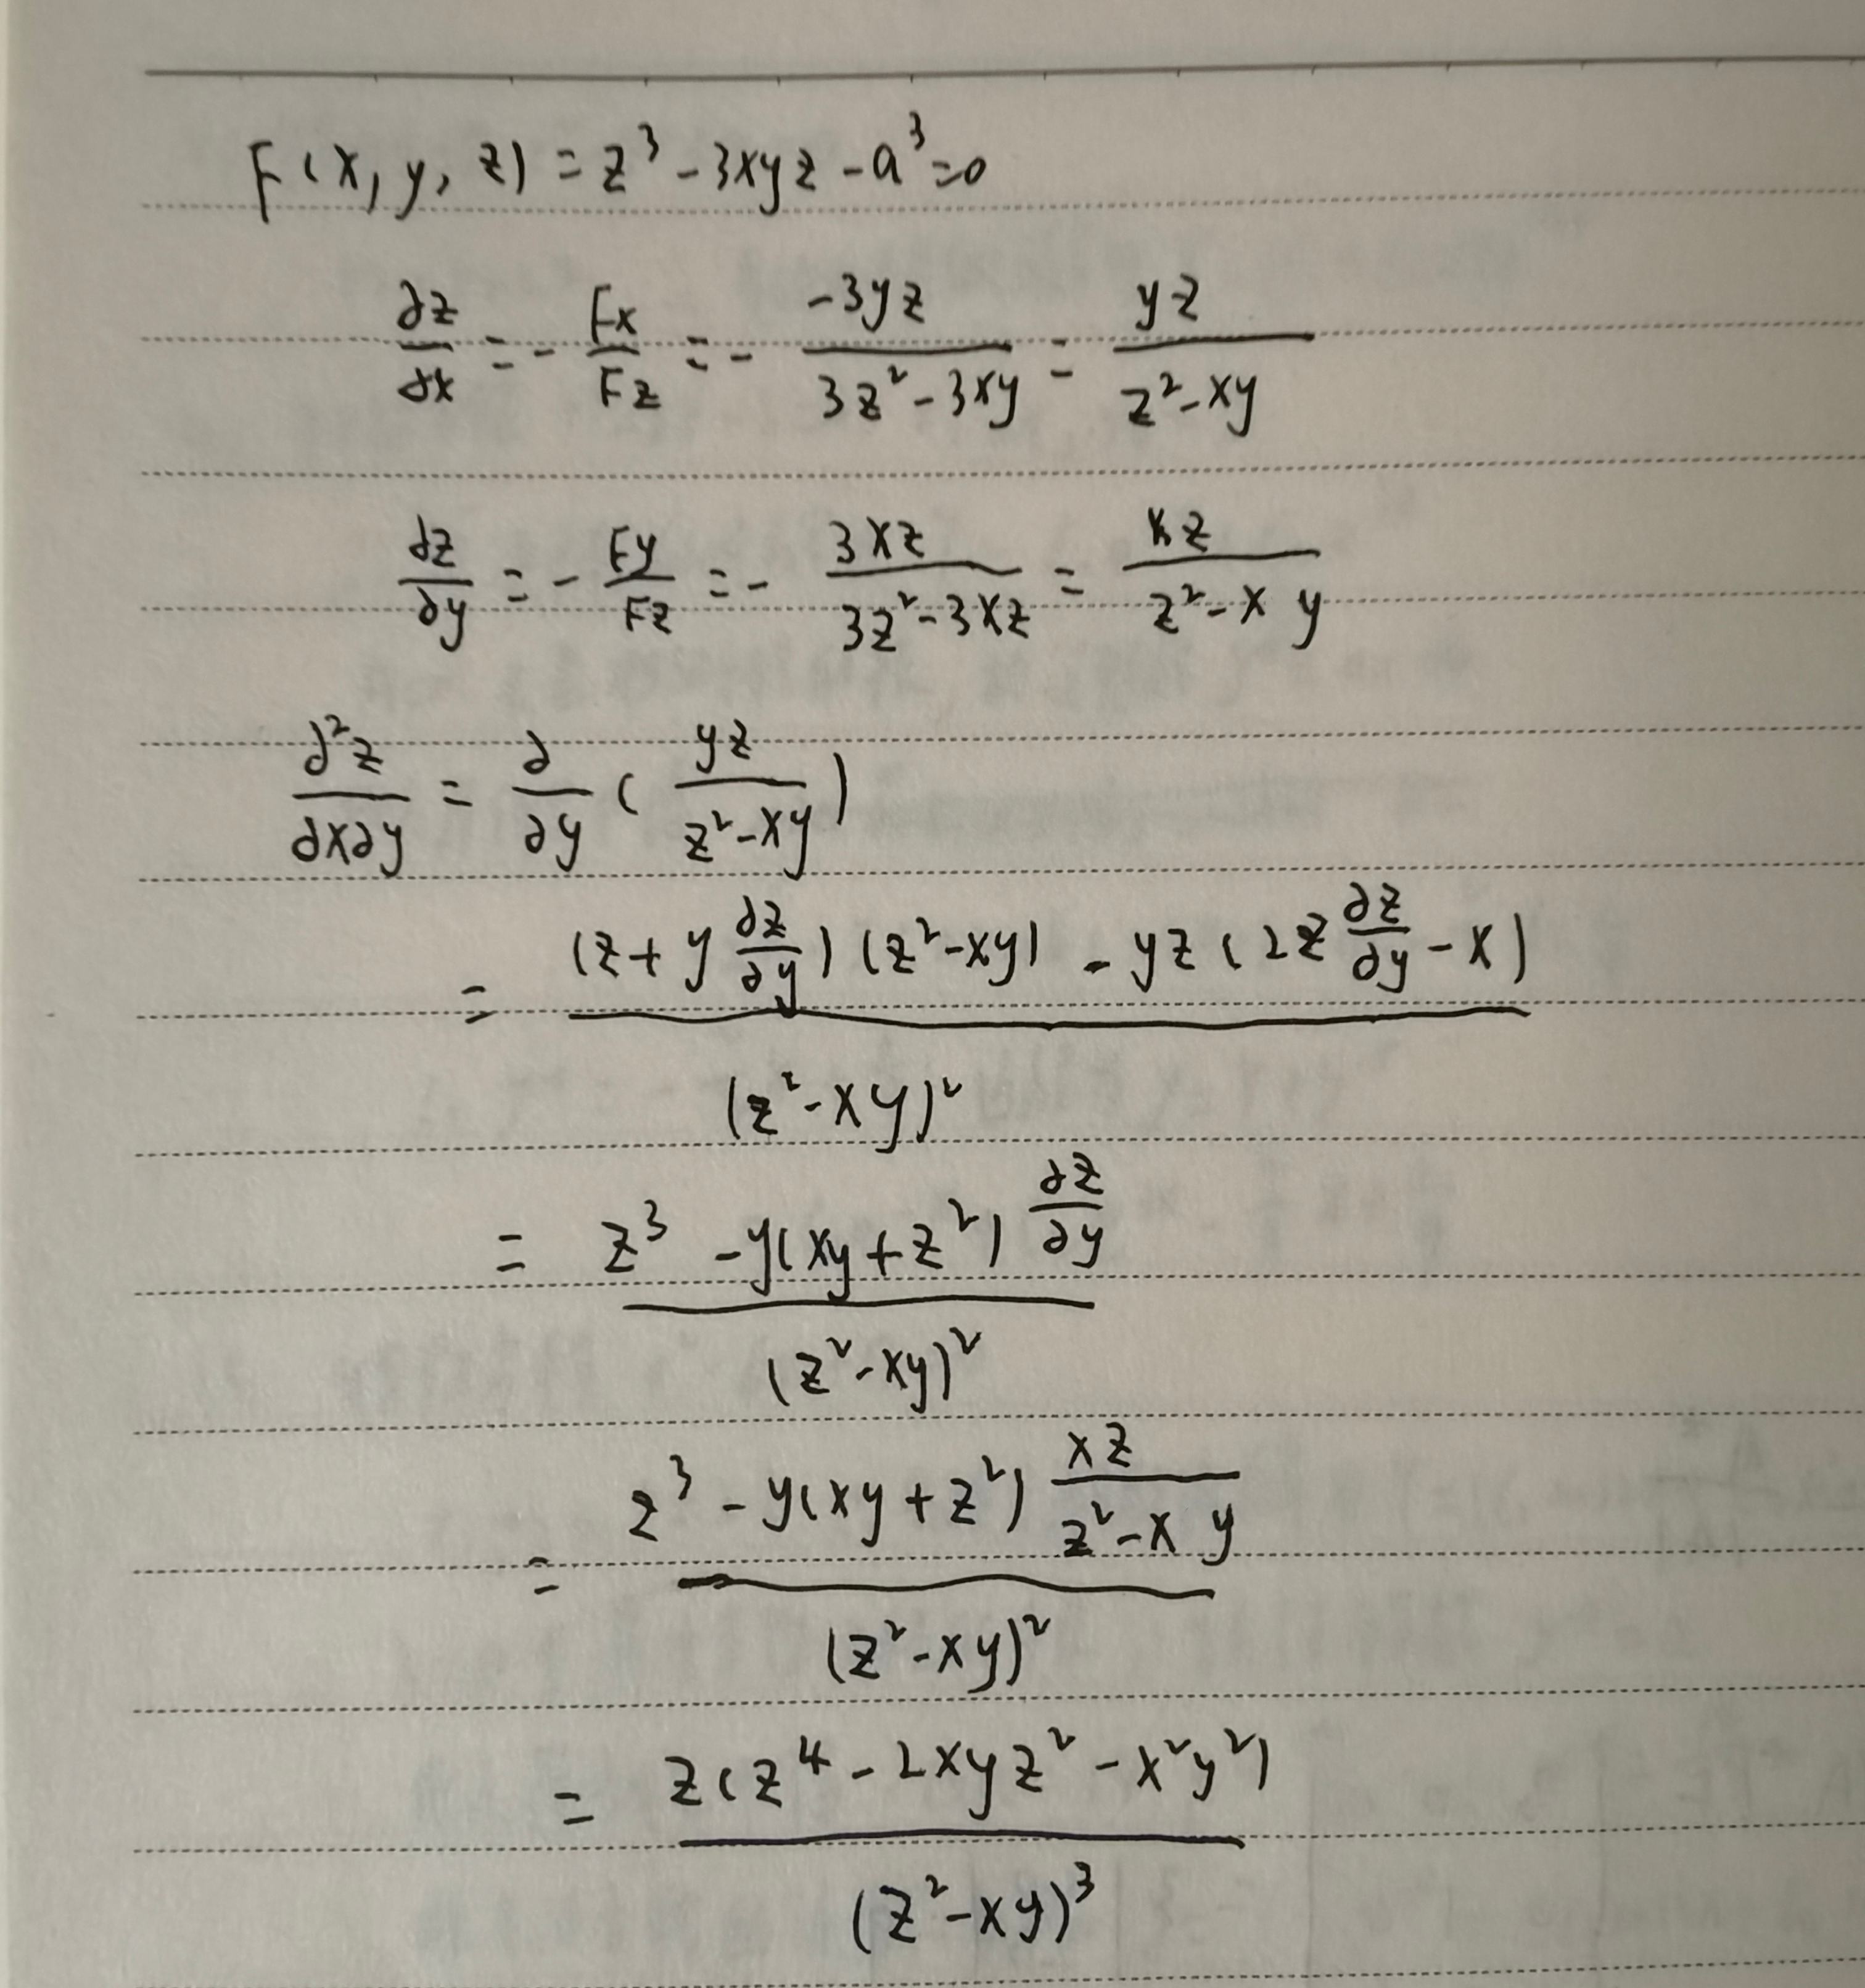 F(x, y, z) = z³ - 3xyz - a³ = 0
∂z/∂x = - Fx/Fz = - (-3yz)/(3z² - 3xy) = yz/(z² - xy)
∂z/∂y = - Fy/Fz = - 3xz/(3z² - 3xz) = xz/(z² - xy)
∂²z/∂x∂y = ∂/∂y (yz/(z² - xy))
= ((z + y ∂z/∂y)(z² - xy) - yz(2z ∂z/∂y - x))/(z² - xy)²
= (z³ - y(xy + z²) ∂z/∂y)/(z² - xy)²
= (z³ - y(xy + z²) xz/(z² - xy))/(z² - xy)²
= z(z⁴ - 2xyz² - x²y²)/(z² - xy)³